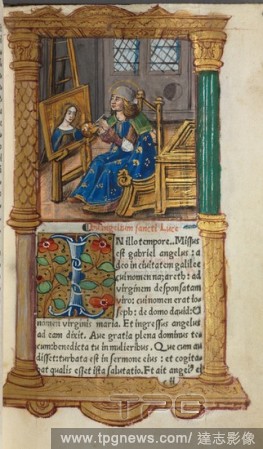 Euangelium sancti Luce
IN illo tempore. Missus
est gabriel angelus: a
deo in ciuitatem galilee
cui nomen nazareth: ad
virginem desponsatam
viro: cui nomen erat io-
seph: de domo dauid: &
nomen virginis maria. Et ingressus angelus
ad eam dixit. Aue gratia plena dominus te
cum benedicta tu in mulieribus. Que cum au
disset: turbata est in sermone eius: et cogita
bat qualis esset ista salutatio. Et ait angel
TPG
www.tpgnews.com / 達志影像